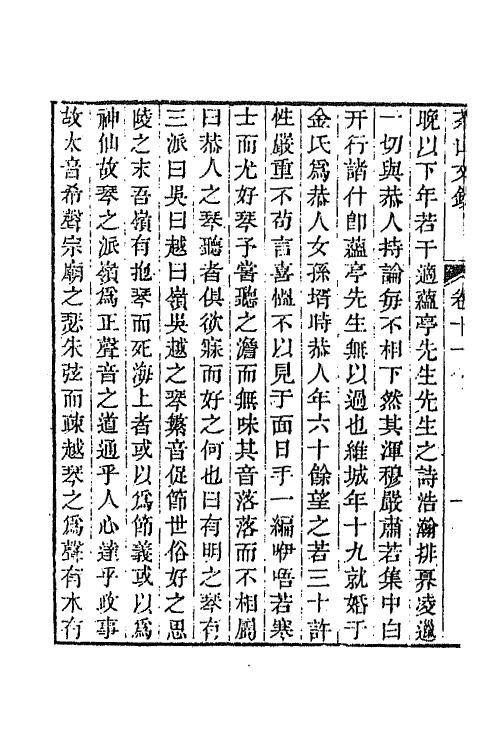 卷十一
晚以下年若干適蘊亭先生先生之詩浩瀚排奡凌邋
一切與恭人持論每不相下然其渾穆嚴肅若集中白
开行諸什卽蘊亭先生無以過也維城年十九就婚于
金氏爲恭人女孫壻時恭人年六十餘望之若三十許
性嚴重不苟言喜慍不以見于面日手一編咿唔若寒
士而尤好琴予嘗聽之澹而無味其音落落而不相屬
曰恭人之琴聽者俱欲寐而好之何也曰有明之琴有
三派曰吳曰越曰嶺吳越之琴繁音促節世俗好之思
陵之末吾嶺有抱琴而死海上者或以爲節義或以爲
神仙故琴之派嶺爲正聲音之道通乎人心達乎政事
故大音希聲宗廟之瑟朱弦而疎越琴之爲聲有水有